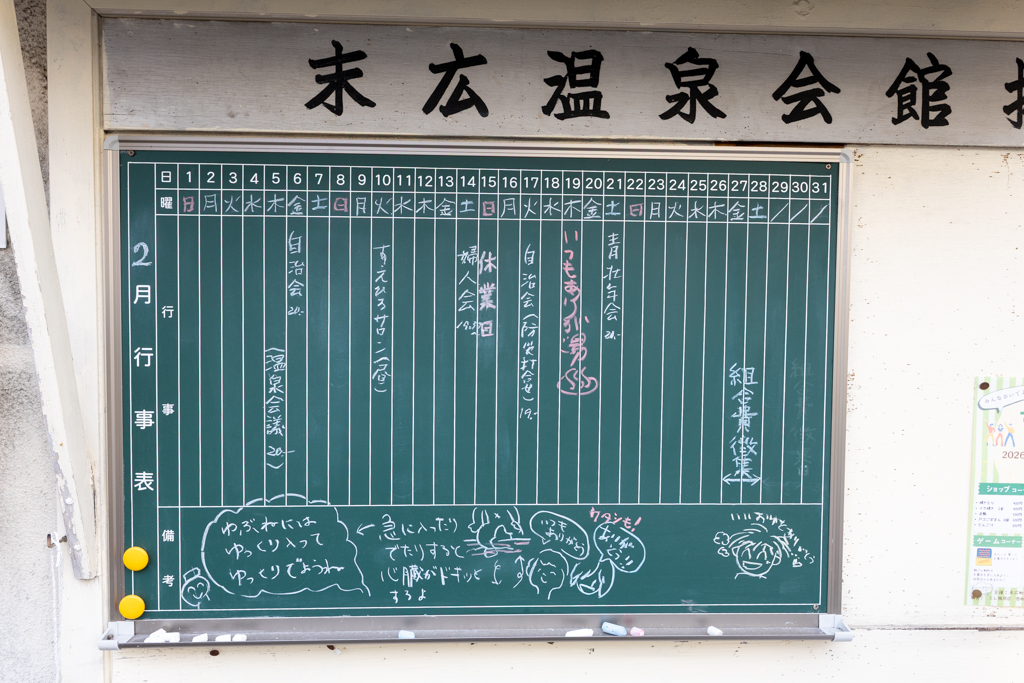 末広温泉会館
2月行事表
日 1 2 3 4 5 6 7 8 9 10 11 12 13 14 15 16 17 18 19 20 21 22 23 24 25 26 27 28 29 30 31
曜 日 月 火 水 木 金 土 日 月 火 水 木 金 土 日 月 火 水 木 金 土 日 月 火 水 木 金 土 / / /
行事
(温泉会議 20.-)
自治会 20.-
すえひろサロン(昼)
婦人会 19.30
休業日
自治会(防災打合せ) 19.-
いつもありが男
青壮年会 20.-
組合費徴集
備考
ゆぶねには
ゆっくり入って
ゆっくりでようね
←急に入ったり
でたりすると
心臓がドキッと
するよ
いつも
ありがとう
ワタシも!
2026
ショップコーナー
ゲームコーナー